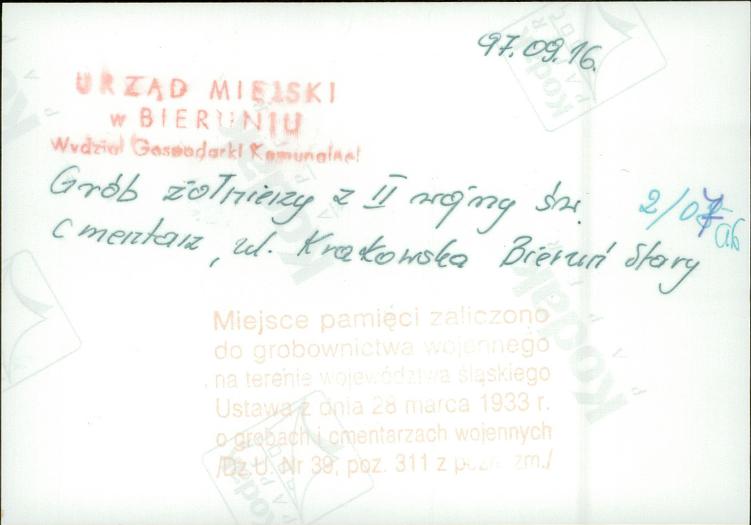 97.09.16.
URZĄD MIEJSKI
w BIERUNIU
Wydział Gospodarki Komunalnej
Grób żołnierzy z II wojny św.
2/07
cmentarz, ul. Krakowska Bieruń Stary
Miejsce pamięci zaliczono
do grobownictwa wojennego
na terenie województwa śląskiego
Ustawa z dnia 28 marca 1933 r.
o grobach i cmentarzach wojennych
/Dz.U. Nr 39, poz. 311 z późn. zm./
Kodak
Kodak
Kodak
Kodak